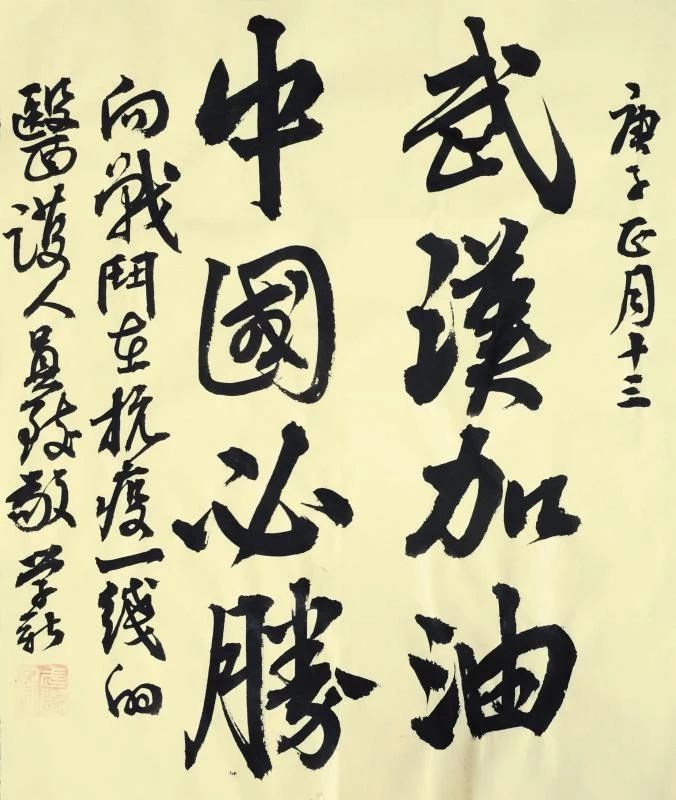 庚子正月十三
武漢加油
中國必勝
向戰鬥在抗疫一线的
醫護人員致敬 学新